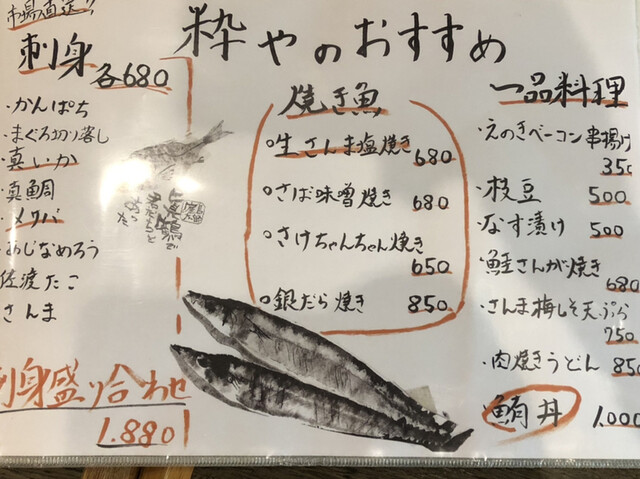 市場直送
粋やのおすすめ
刺身
各680
・かんぱち
・まぐろ切り落し
・真いか
・真鯛
・メサバ
・あじなめろう
佐渡たこ
さんま
刺身盛り合わせ
1.880
焼き魚
○生さんま塩焼き 680
○さば味噌焼き 680
○さけちゃんちゃん焼き
650
○銀だら焼き 850
一品料理
・えのきベーコン串揚げ
350
・枝豆 500
・なす漬け 500
・鮭さんが焼き
680
・さんま梅しそ天ぷら
750
・肉焼きうどん 850
鮪丼 1.000